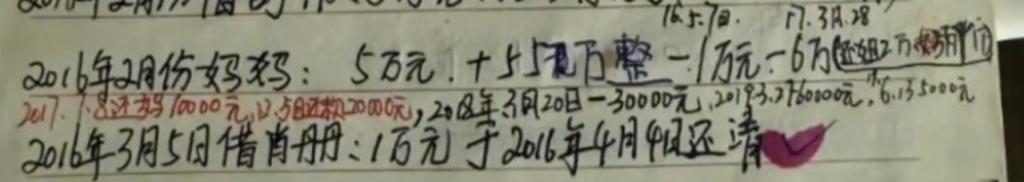 16.5.7日. 17.3月.28
2016年2月份妈妈: 5万元.+55万整-1万元-6万(还姐2万
2017.7.8还妈10000元,12.5日还20000元,2018年3月20日-30000元,2019.3.27 60000元,6.13 5000元
2016年3月5日借肖丹丹:1万元于2016年4月4日还清